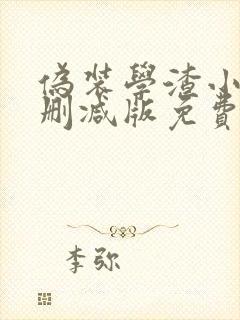 偽裝學渣小
刪減版免費
李弥